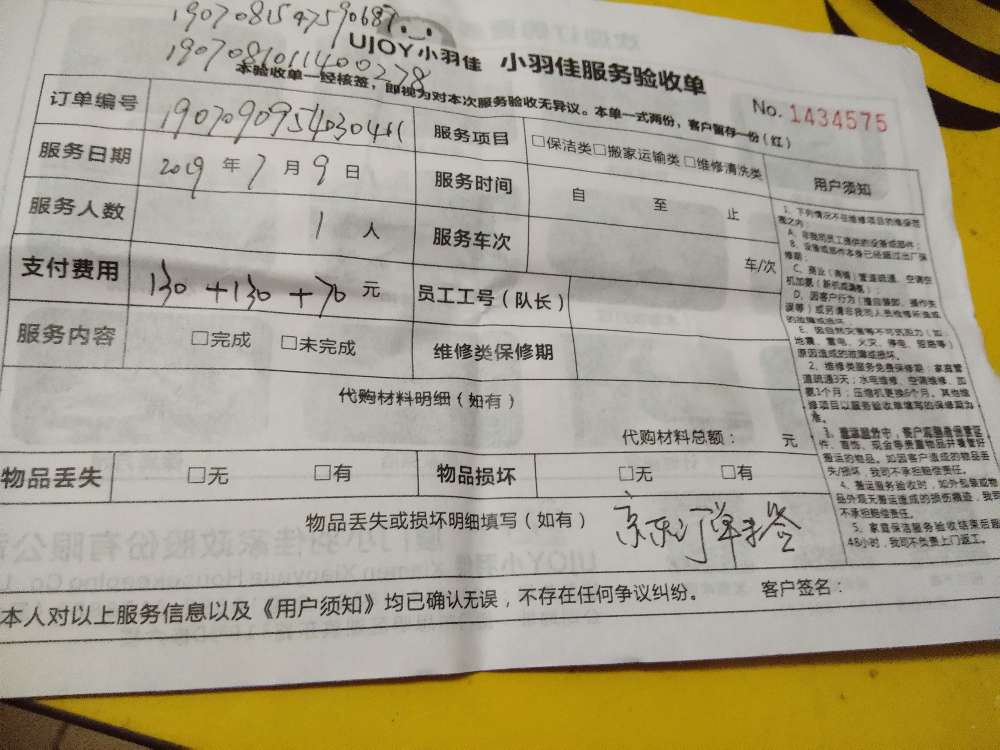 190708154759068
190708101140027 8
UJOY小羽佳 小羽佳服务验收单
本验收单一经核签，即视为对本次服务验收无异议。本单一式两份，客户暂存一份（红）
No. 1434575
订单编号
服务项目 □保洁类□搬家运输类□维修清洗类
服务日期 2019 年 7 月 9 日
服务时间 自 至 止
服务人数 1 人
服务车次 车/次
支付费用 130+130+70 元
员工工号（队长）
服务内容 □完成 □未完成
维修类保修期
代购材料明细（如有）
代购材料总额： 元
物品丢失 □无 □有
物品损坏 □无 □有
物品丢失或损坏明细填写（如有） 京东订单手签
本人对以上服务信息以及《用户须知》均已确认无误，不存在任何争议纠纷。 客户签名：
用户须知
1、下列情况不在维修项目的维保范
围之内：
A、非我司员工提供的设备或部件；
B、设备或部件本身已经超过出厂保
修期；
C、商业（商铺）管道疏通、空调空
机加氨（新机或满氨）；
D、因客户行为（擅自装卸、操作失
误等）或另请非我司人员检修所造成
的故障或损坏
E、因自然灾害等不可抗拒力（如：
地震、雷电、火灾、停电、短路等）
原因造成的故障或损坏。
2、维修类服务免费保修期：家庭管
道疏通3天；水电维修、空调维修、加
氨1个月；压缩机更换6个月。其他维
修项目以服务验收单填写的保修期为
准。
3、搬运服务中，客户应随身保管证
件、首饰、现金等贵重物品并看管好
搬运的物品。如因客户造成的物品丢
失/损坏，我司不承担赔偿责任。
4、搬运服务验收时，如外包装或物
品外观无搬运造成的损伤痕迹，我司
不承担赔偿责任。
5、家庭保洁服务验收结束后超
48小时，我司不负责上门返工。